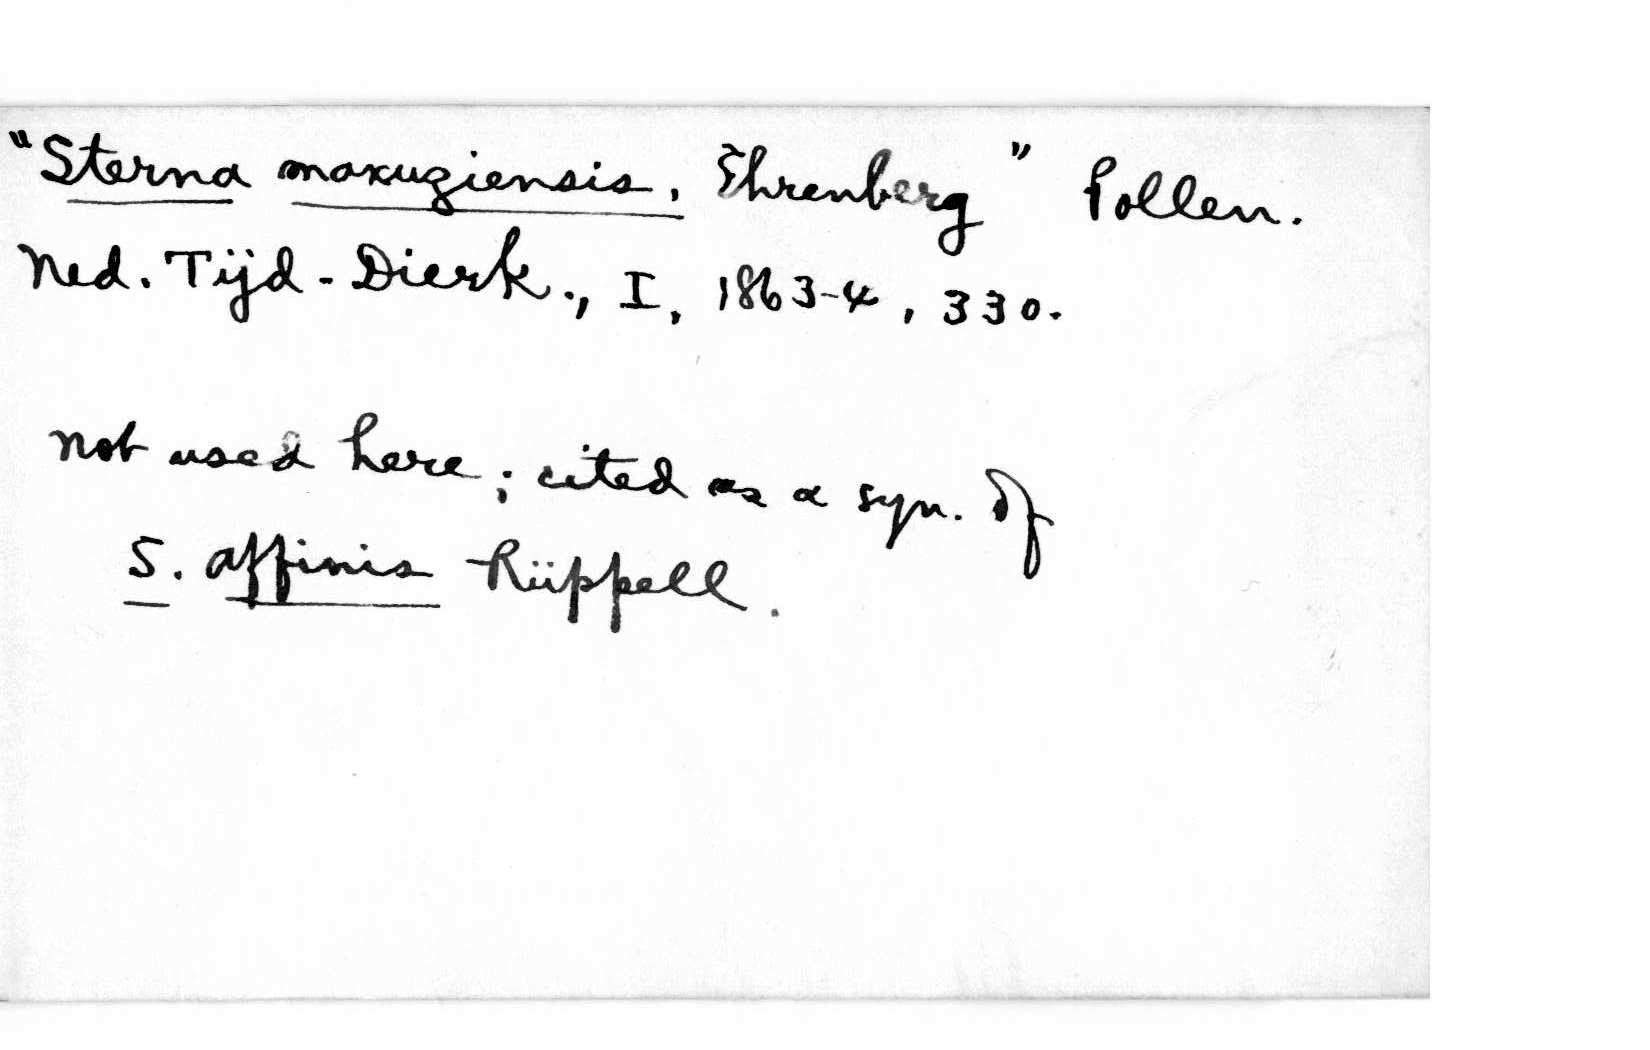 "Sterna maxuziensis, Ehrenberg" Pollen.
Ned. Tijd-Dierk., I, 1863-4, 330.
not used here; cited as a syn. of
S. affinis Rüppell.